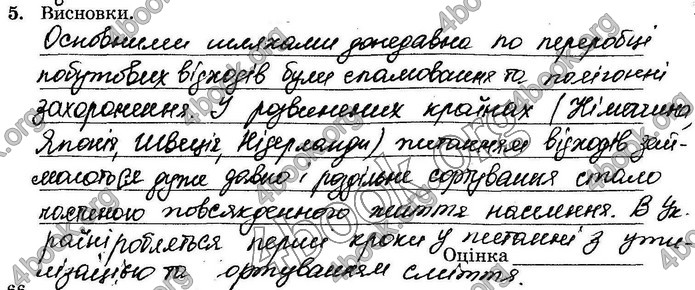 5. Висновки.
Основними шляхами донедавна по переробці
побутових відходів були спалювання та полігонні
захоронення. У розвинених країнах (Німеччина
Японія, Швеція, Нідерланди) питанням відходів зай-
малються дуже давно і роздільне сортування стало
частиною повсякденного життя населення. В Ук-
раїні робляться перші кроки у питанні з ути-
Оцінка
лізацією та сортуванням сміття.
66
4book.org